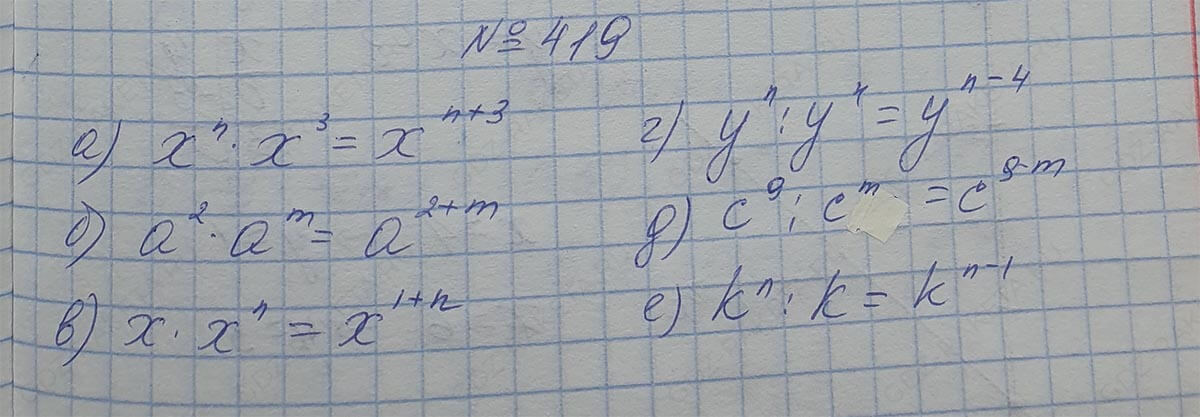 № 419
а) xⁿ · x³ = xⁿ⁺³
б) a² · aᵐ = a²⁺ᵐ
в) x · xⁿ = x¹⁺ⁿ
г) yⁿ : y⁴ = yⁿ⁻⁴
д) c⁹ : cᵐ = c⁹⁻ᵐ
е) kⁿ : k = kⁿ⁻¹